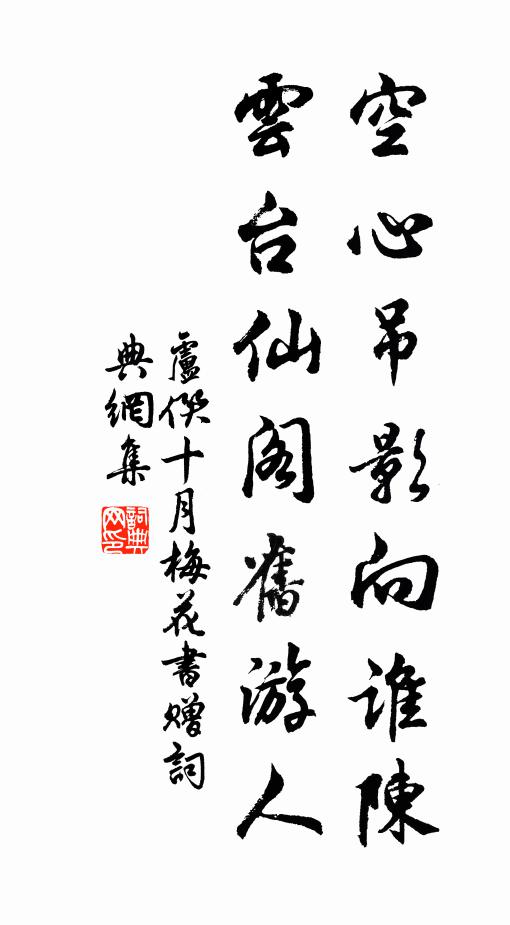 空心吊影向誰陳
雲台仙阁舊游人
盧僎十月梅花書贈詞
典網集
詞典
网印